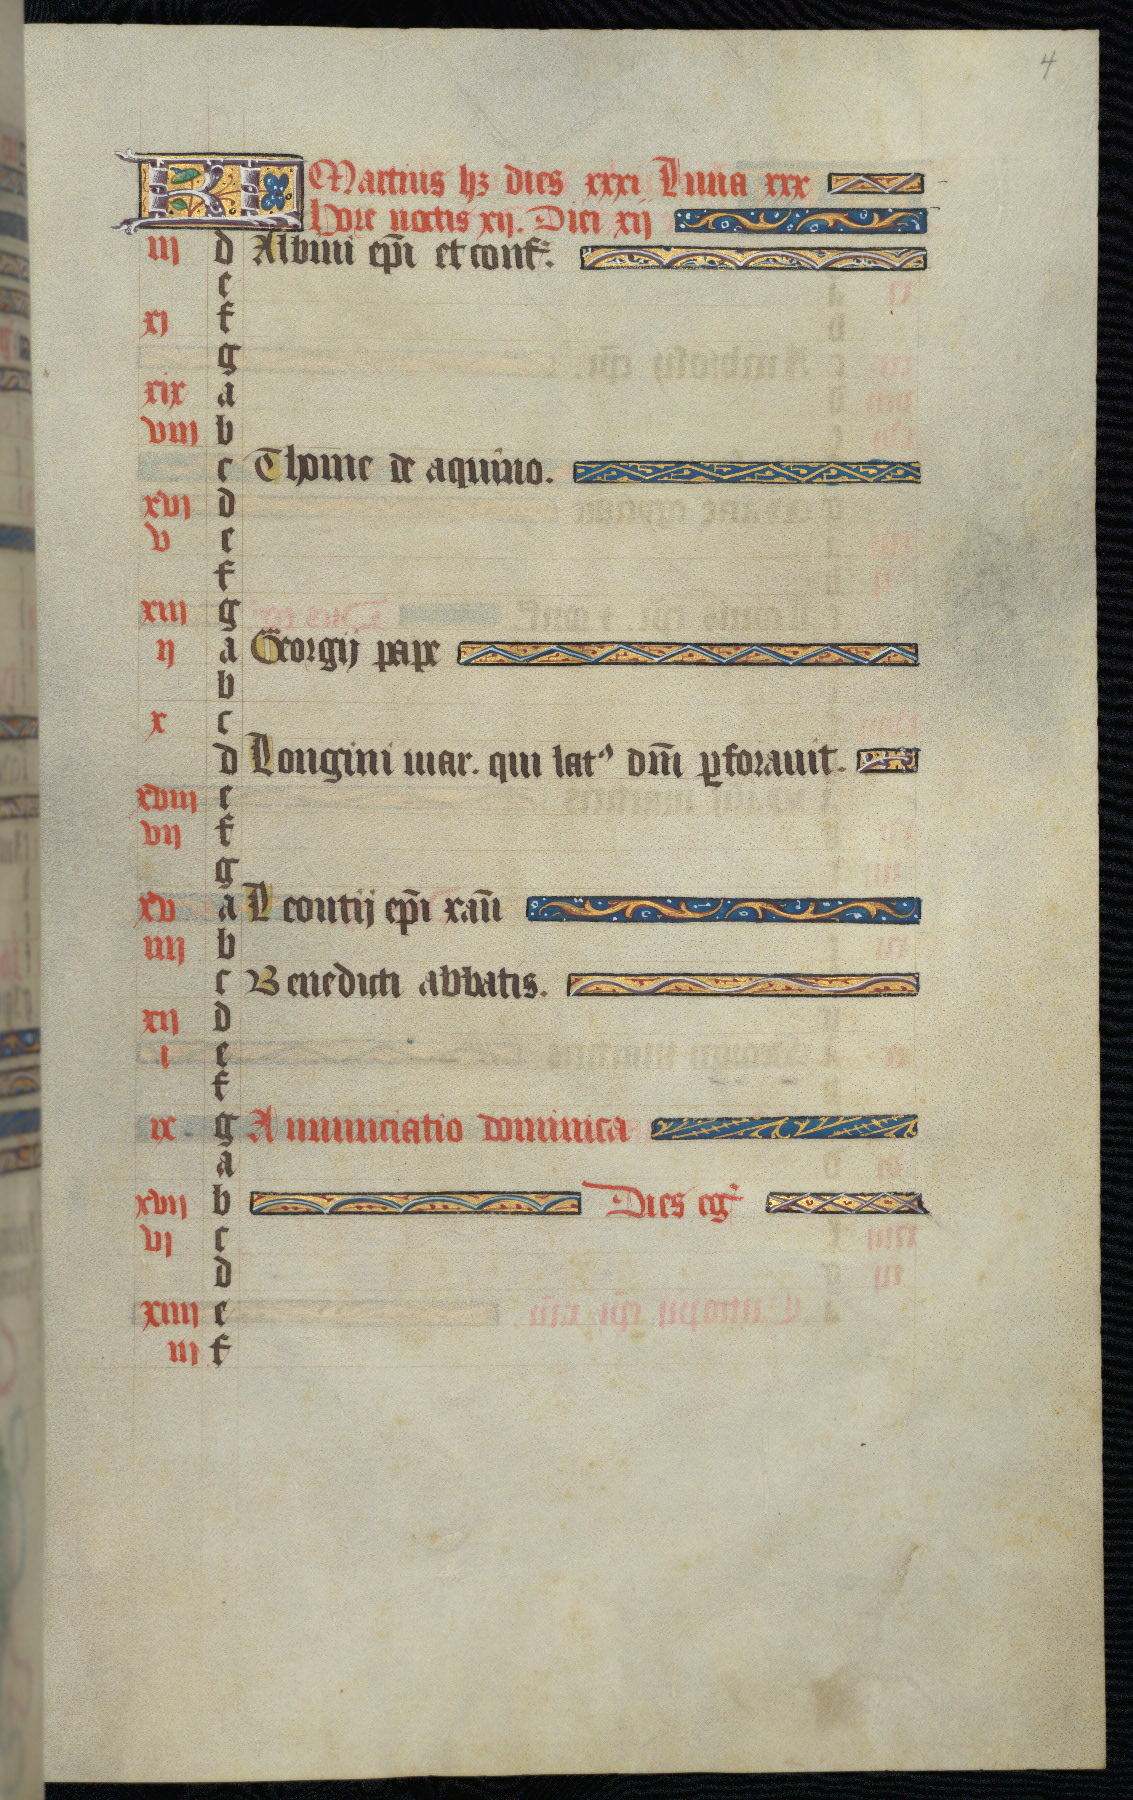 4
KL Martius hꝫ dies xxxi Luna xxx
Hore noctis xij. Diei xij
iij d Albini ep̄i et conf.
e
xj f
g
xix a
viij b
c Thome de aquino.
xvj d
v e
f
xiij g
ij a Georgij pape
b
x c
d Longini mar. qui latꝰ dn̄i ꝑforauit.
xviij e
vij f
g
xv a Leontij ep̄i xan̄
iiij b
c Benedicti abbatis.
xij d
i e
f
ix g Annunciatio dominica
a
xvij b Dies eg
vj c
d
xiiij e
iij f